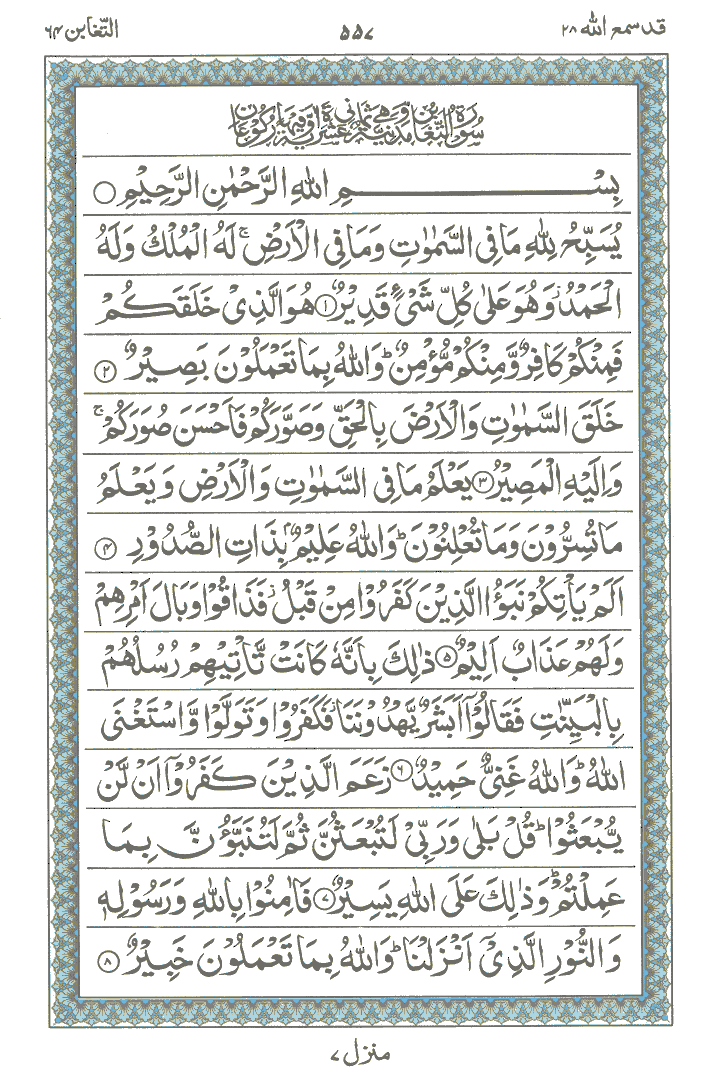 قد سمع الله ٢٨
٥٥٧
التغابن ٦٤
سُوْرَةُ التَّغَابُنِ مَدَنِيَّةٌ وَّهِيَ ثَمَانِيَ عَشْرَةَ اٰيَةً وَّفِيْهَا رُكُوْعَانِ
بِسْمِ اللهِ الرَّحْمٰنِ الرَّحِيْمِ
يُسَبِّحُ لِلّٰهِ مَا فِى السَّمٰوٰتِ وَمَا فِى الْاَرْضِ ۚ لَهُ الْمُلْكُ وَلَهُ
الْحَمْدُ ؗ وَهُوَ عَلٰى كُلِّ شَىْءٍ قَدِيْرٌ ١ هُوَ الَّذِىْ خَلَقَكُمْ
فَمِنْكُمْ كَافِرٌ وَّمِنْكُمْ مُّؤْمِنٌ ؕ وَاللهُ بِمَا تَعْمَلُوْنَ بَصِيْرٌ ٢
خَلَقَ السَّمٰوٰتِ وَالْاَرْضَ بِالْحَقِّ وَصَوَّرَكُمْ فَاَحْسَنَ صُوَرَكُمْ ۚ
وَاِلَيْهِ الْمَصِيْرُ ٣ يَعْلَمُ مَا فِى السَّمٰوٰتِ وَالْاَرْضِ وَيَعْلَمُ
مَا تُسِرُّوْنَ وَمَا تُعْلِنُوْنَ ؕ وَاللهُ عَلِيْمٌۢ بِذَاتِ الصُّدُوْرِ ٤
اَلَمْ يَاْتِكُمْ نَبَؤُا الَّذِيْنَ كَفَرُوْا مِنْ قَبْلُ ؗ فَذَاقُوْا وَبَالَ اَمْرِهِمْ
وَلَهُمْ عَذَابٌ اَلِيْمٌ ٥ ذٰلِكَ بِاَنَّهٗ كَانَتْ تَّاْتِيْهِمْ رُسُلُهُمْ
بِالْبَيِّنٰتِ فَقَالُوْۤا اَبَشَرٌ يَّهْدُوْنَنَا ؗ فَكَفَرُوْا وَتَوَلَّوْا وَّاسْتَغْنَى
اللهُ ؕ وَاللهُ غَنِىٌّ حَمِيْدٌ ٦ زَعَمَ الَّذِيْنَ كَفَرُوْۤا اَنْ لَّنْ
يُّبْعَثُوْا ؕ قُلْ بَلٰى وَرَبِّىْ لَتُبْعَثُنَّ ثُمَّ لَتُنَبَّؤُنَّ بِمَا
عَمِلْتُمْ ؕ وَذٰلِكَ عَلَى اللهِ يَسِيْرٌ ٧ فَاٰمِنُوْا بِاللهِ وَرَسُوْلِهٖ
وَالنُّوْرِ الَّذِىْۤ اَنْزَلْنَا ؕ وَاللهُ بِمَا تَعْمَلُوْنَ خَبِيْرٌ ٨
منزل ٧